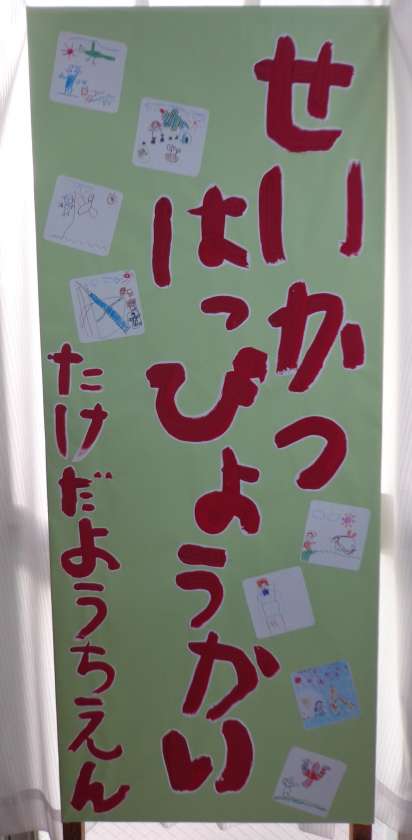 せいかつ
はっぴょうかい
たけだようちえん